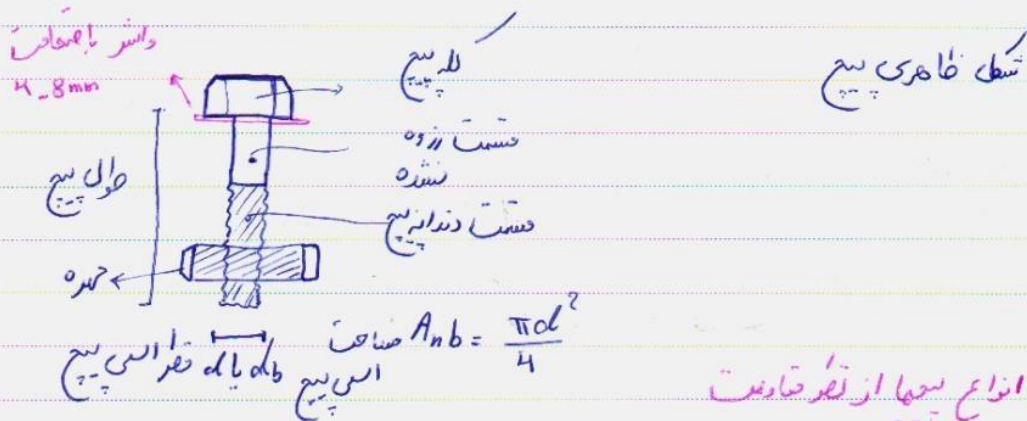 شکل ظاهری پیچ
واشر با ضخامت
4-8mm
کله پیچ
قسمت رزوه
نشده
قسمت دندانه پیچ
طول پیچ
مهره
d یا db قطر اسمی پیچ
Anb = πd²/4 مساحت
اسمی پیچ
انواع پیچها از نظر مقاومت